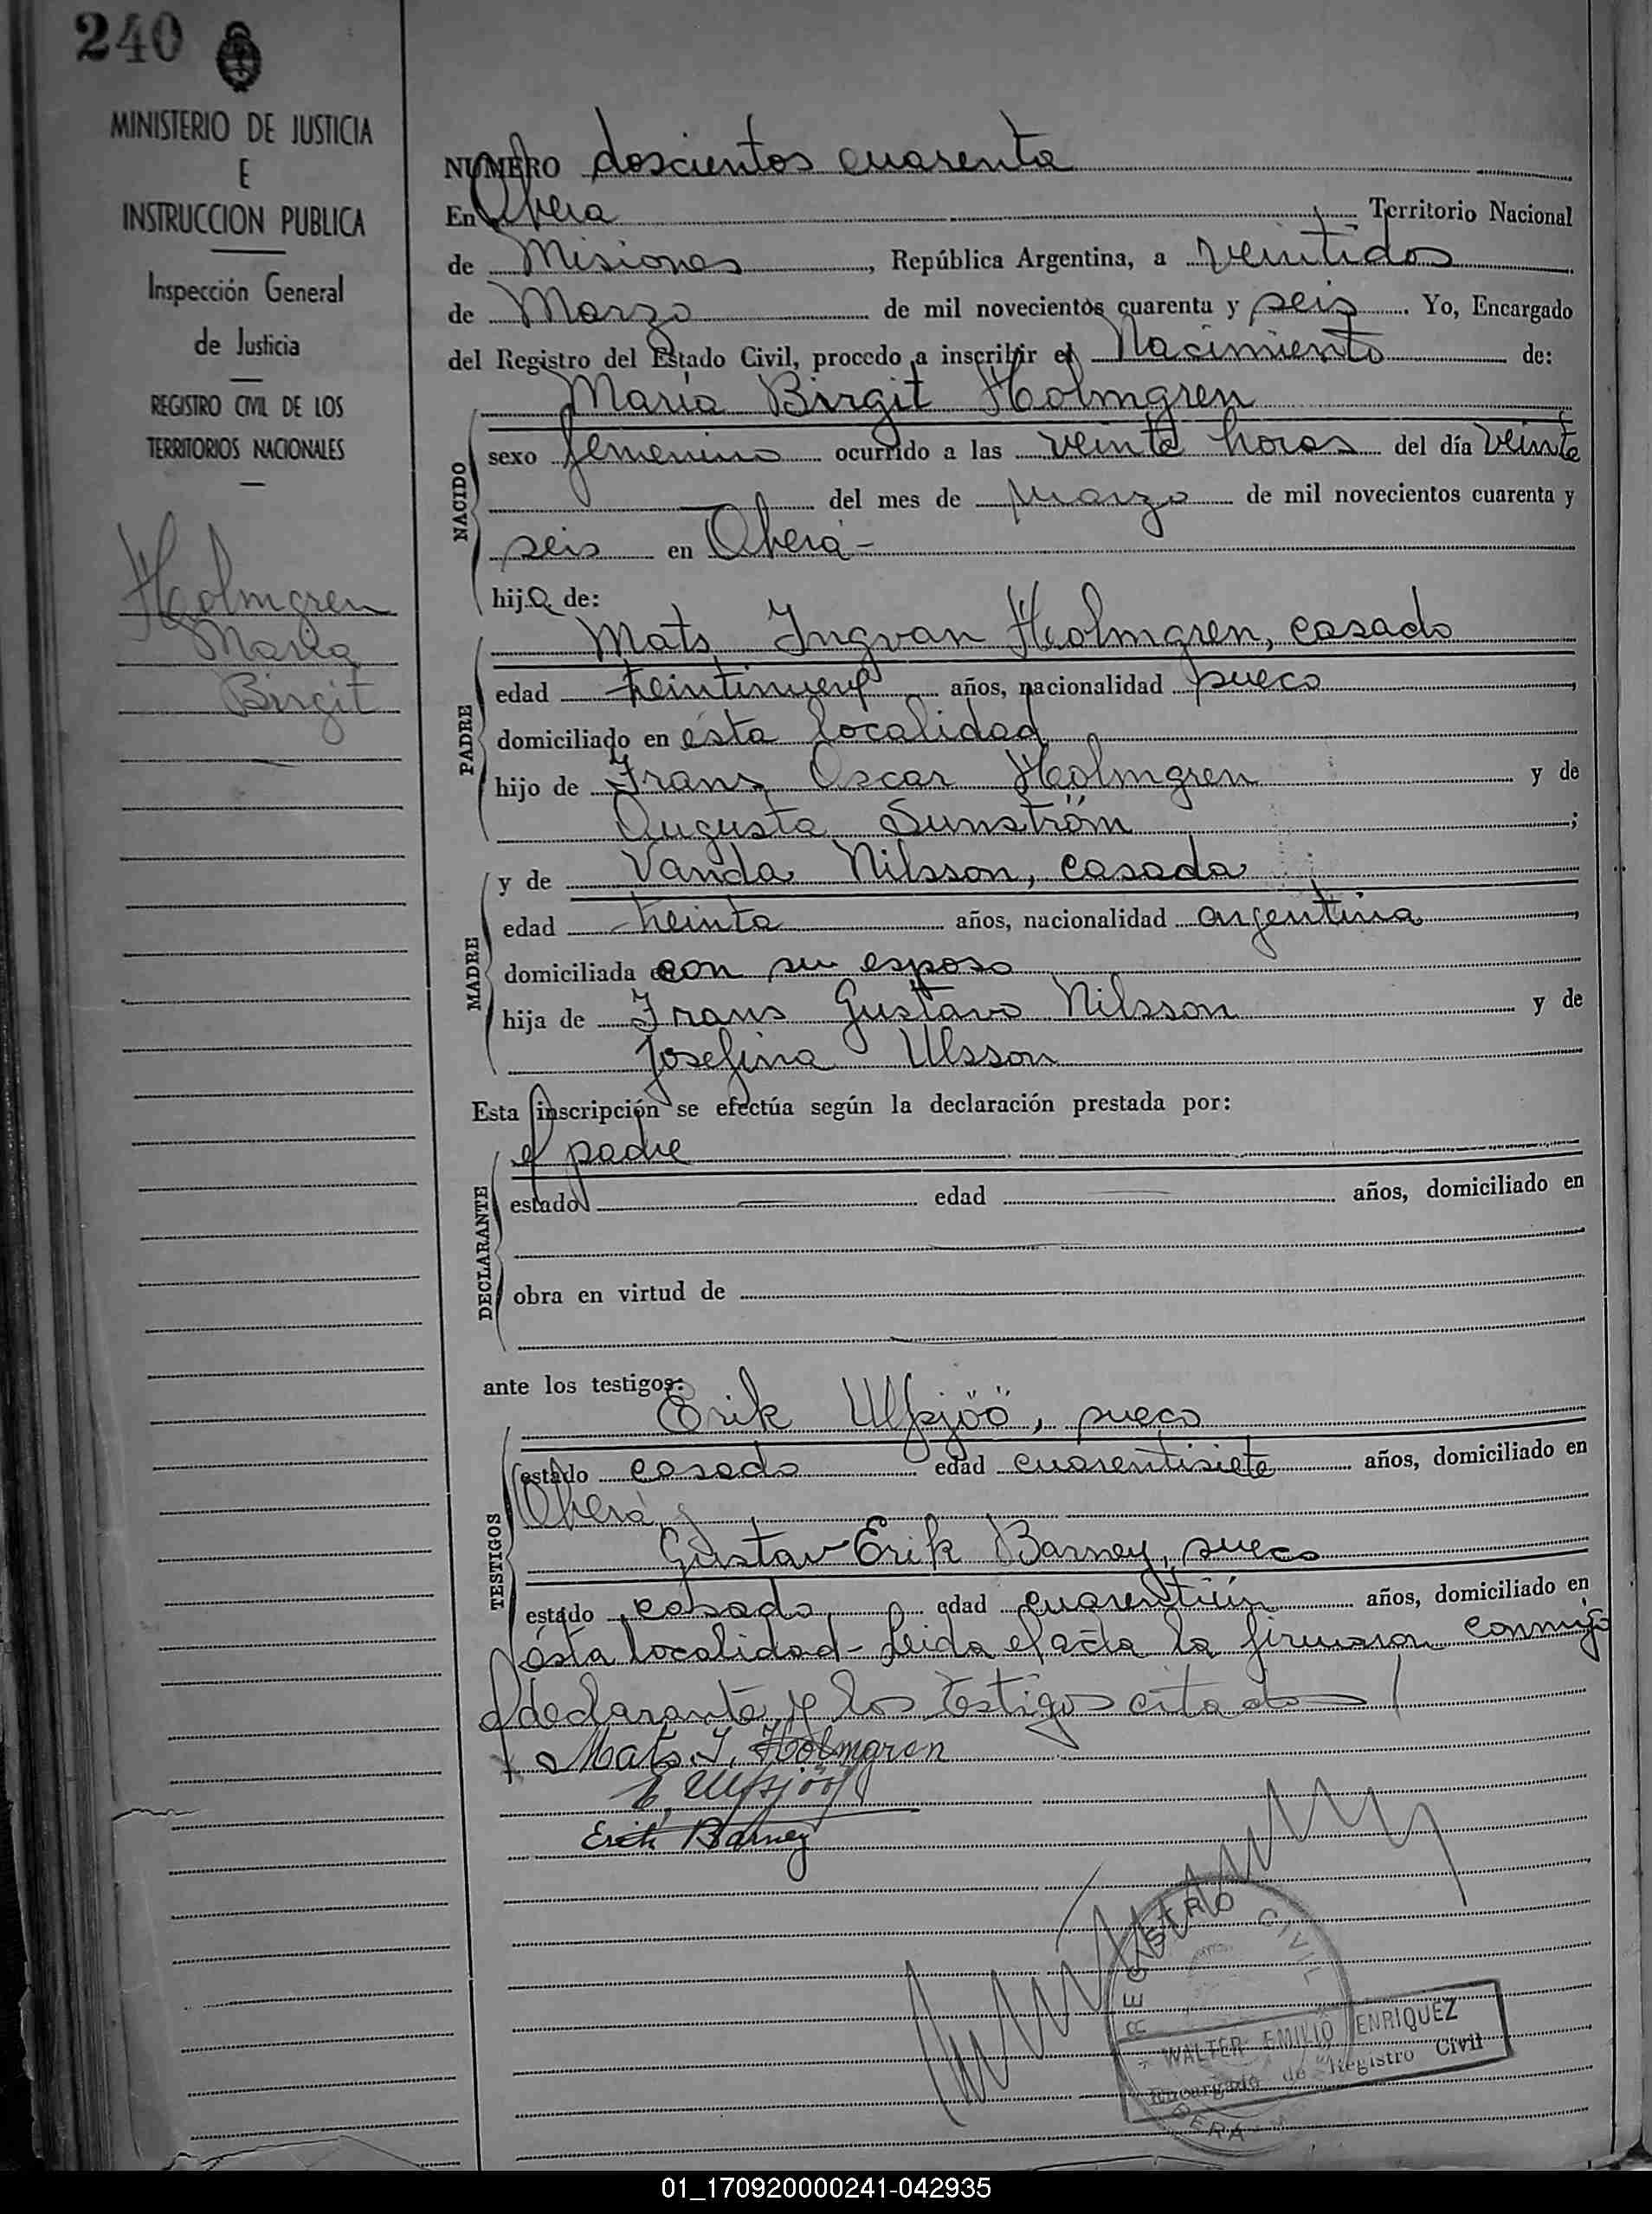 240
MINISTERIO DE JUSTICIA
E
INSTRUCCION PUBLICA
Inspección General
de Justicia
REGISTRO CIVIL DE LOS
TERRITORIOS NACIONALES
Holmgren
María
Birgit
NUMERO doscientos cuarenta
En Obera Territorio Nacional
de Misiones, República Argentina, a veintidos
de Marzo de mil novecientos cuarenta y seis. Yo, Encargado
del Registro del Estado Civil, procedo a inscribir el Nacimiento de:
María Birgit Holmgren
NACIDO
sexo femenino ocurrido a las veinte horas del día veinte
del mes de marzo de mil novecientos cuarenta y
seis en Oberá-
hija de:
PADRE
Mats Ingvan Holmgren, casado
edad treintinueve años, nacionalidad sueco
domiciliado en ésta localidad
hijo de Frans Oscar Holmgren y de
Augusta Sunström;
MADRE
y de Vanda Nilsson, casada
edad treinta años, nacionalidad argentina
domiciliada con su esposo
hija de Frans Gustavo Nilsson y de
Josefina Ulsson
Esta inscripción se efectúa según la declaración prestada por:
DECLARANTE
el padre
estado edad años, domiciliado en
obra en virtud de
ante los testigos:
TESTIGOS
Erik Ulfsjöö, sueco
estado casado edad cuarentisiete años, domiciliado en
Oberá
Gustav Erik Barney, sueco
estado casado, edad cuarentiún años, domiciliado en
ésta localidad- Leida el acta la firmaron conmigo
el declarante y los testigos citados
Mats I. Holmgren
E. Ulfsjöö
Erik Barney
REGISTRO CIVIL
WALTER EMILIO ENRIQUEZ
Encargado de Registro Civil
OBERA
01_170920000241-042935